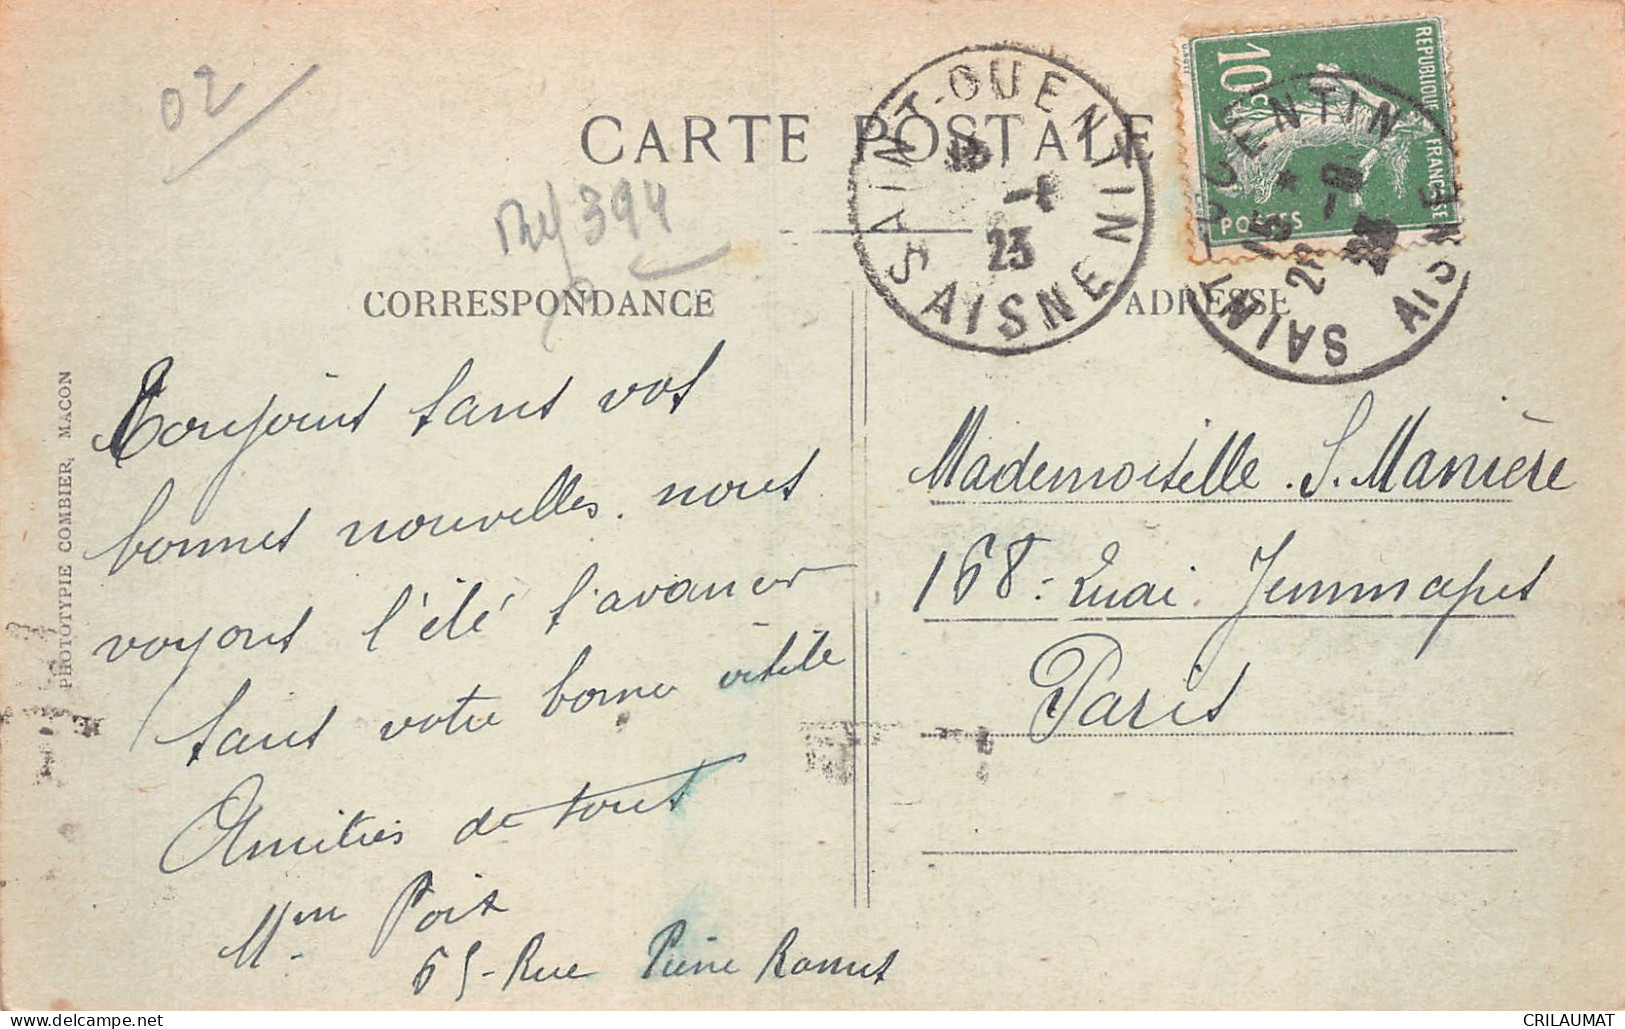 02
Ref 394
CARTE POSTALE
CORRESPONDANCE
ADRESSE
SAINT-QUENTIN
AISNE
23
REPUBLIQUE FRANÇAISE
10c
POSTES
SAINT-QUENTIN
AISNE
15
PHOTOTYPIE COMBIER, MACON
Toujours sans vos
bonnes nouvelles. nous
voyons l'été s'avancer
sans votre bonne visite
Amitiés de tous
Mme Poix
65 - Rue Pierre Ramus
Mademoiselle. S. Manière
168: Quai Jemmapes
Paris
CRILAUMAT